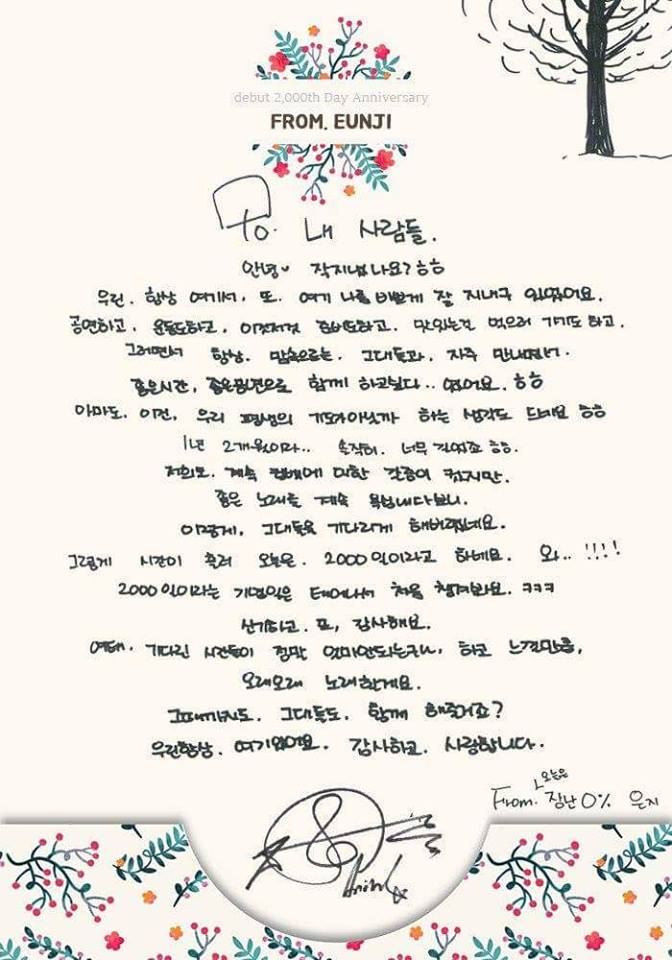 debut 2,000th Day Anniversary
FROM. EUNJI
To. 내 사람들.
안녕 잘지냈나요? ㅎㅎ
우린. 항상 여기서, 또. 여기 나름 바쁘게 잘 지내구 있었어요.
공연하고, 운동도하고, 이것저것 준비도하고. 맛있는것 먹으러 가기도 하고.
그러면서 항상. 맘속으로는. 그대들과. 자주 만나면서.
좋은시간, 좋은방면으로 함께 하고싶다.. 했어요. ㅎㅎ
아마도. 이건, 우리 평생의 기도가아닐까 하는 생각도 드네요 ㅎㅎ
1년 2개월이라.. 솔직히. 너무 길었죠 ㅎㅎ.
저희도. 계속 컴백에 대한 갈증이 컸지만.
좋은 노래를 계속 욕심내다보니.
이렇게, 그대들을 기다리게 해버렸네요.
그렇게 시간이 흘러 오늘은. 2000일이라고 하네요. 와.. !!!!
2000일이라는 기념일은 태어나서 처음 챙겨봐요. ㅋㅋㅋ
신기하고. 또, 감사해요.
여태. 기다린 시간들이 정말 의미있는거구나, 하고 느낄만큼,
오래오래 노래할게요.
그때까지도. 그대들도. 함께 해줄거죠?
우린항상. 여기있어요. 감사하고. 사랑합니다.
오늘은
From. 장난0% 은지